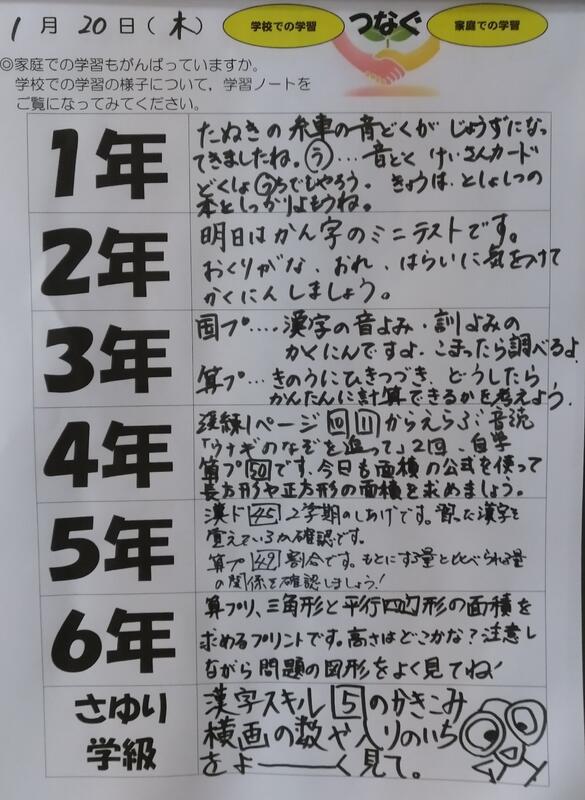 1月20日(木)
学校での学習 つなぐ 家庭での学習
◎家庭での学習もがんばっていますか。
学校での学習の様子について，学習ノートを
ご覧になってみてください。
1年
たぬきの糸車の音どくが じょうずになっ
てきましたね。う…音どく けいさんカード
どくしょ うちでもやろう。 きょうは、としょしつの
本としっかりよもうね。
2年
明日はかん字のミニテストです。
おくりがな、おれ、はらいに気をつけて
かくにんしましょう。
3年
国プ….漢字の音よみ・訓よみの
かくにんですよ.こまったら調べるよ
算プ…きのうにひきつづき、どうしたら
かんたんに計算できるかを考えよう。
4年
漢練1ページ 10 11 からえらぶ 音読
「ウナギのなぞを追って」2回、自学
算プ50です。今日も面積の公式を使って
長方形や正方形の面積を求めましょう。
5年
漢ド45 2学期のしあげです。習った漢字を
覚えているか確認です。
算プ49 割合です。もとにする量とくらべられる量
の関係を確認しましょう!
6年
算プリ、三角形と平行四辺形の面積を
求めるプリントです。高さはどこかな?注意し
ながら問題の図形をよく見てね!
さゆり
学級
漢字スキル5のかきこみ
横画の数や入りのいち
をよーーく見て。